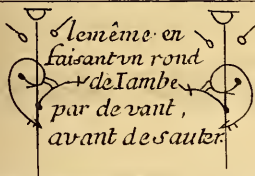 lemême en
faisant vn rond
de Iambe
par devant,
avant de sauter.